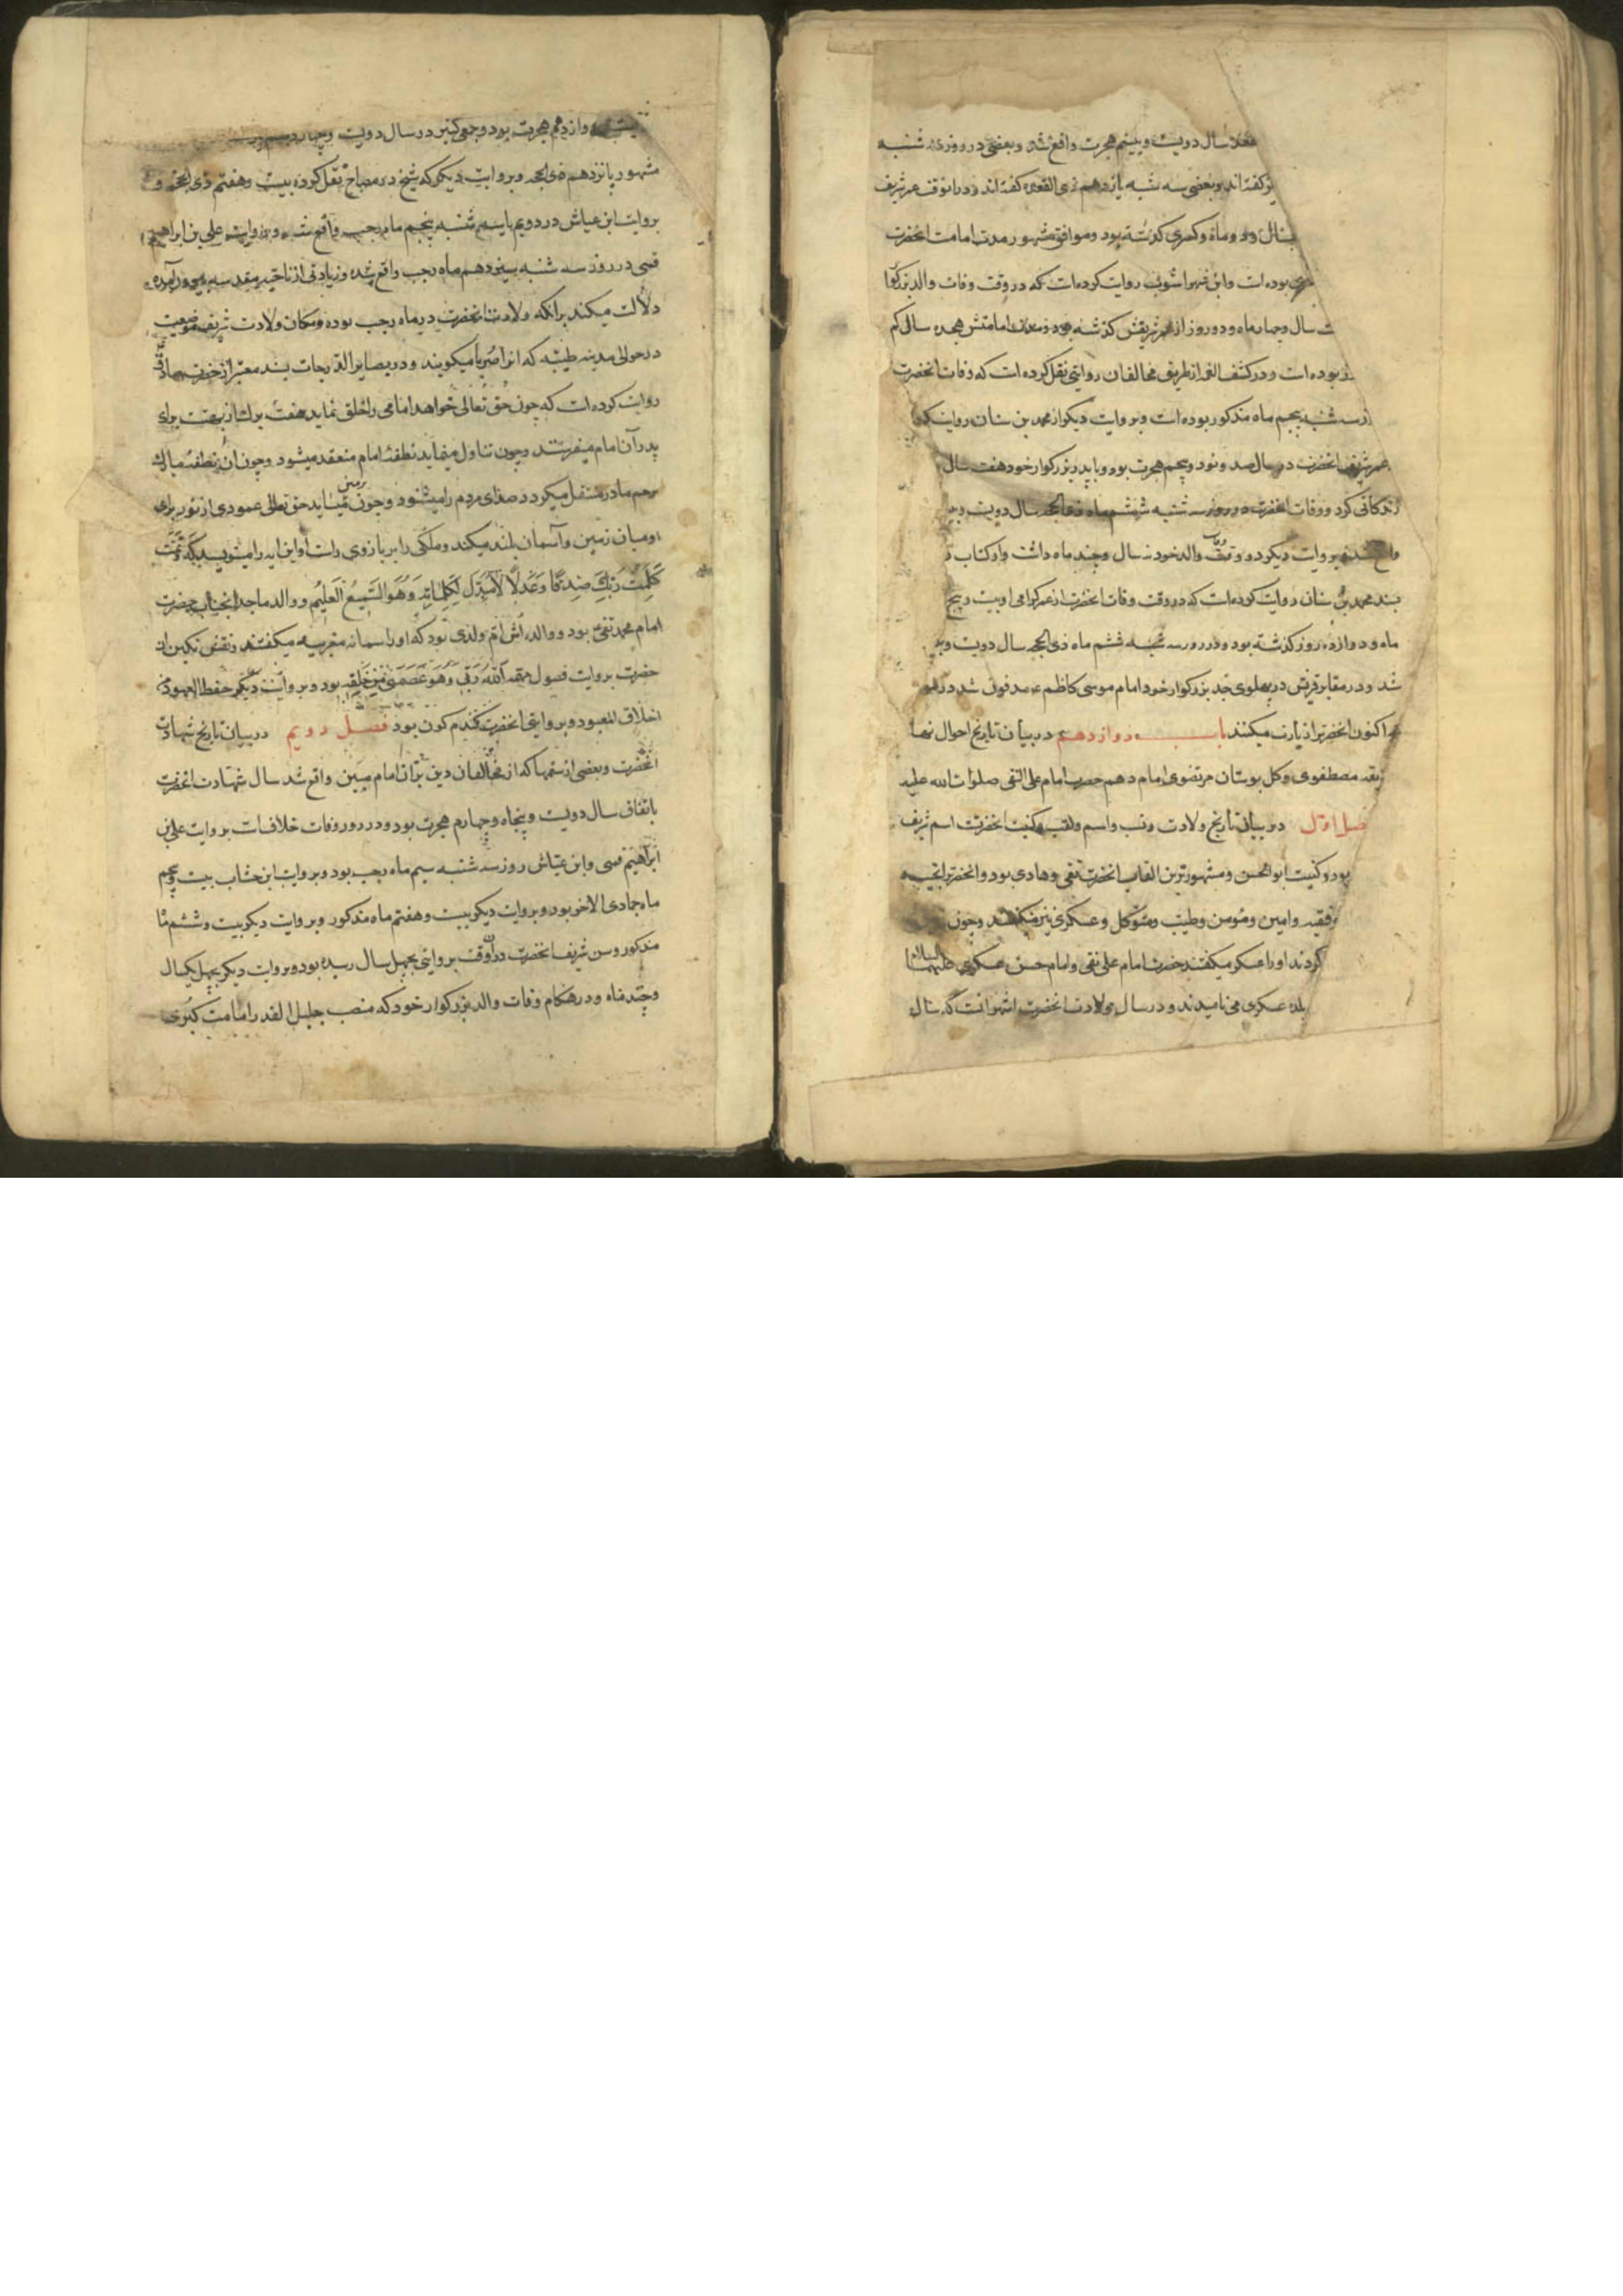 سال دویست و بیستم هجرت واقع شد و بعضی در روز شنبه
نیز گفته‌اند و بعضی سه شنبه یازدهم ذی القعده گفته‌اند و در انوقت عمر شریف
سال و دو ماه و کسری گذشته بود و موافق مشهور مدت امامت انحضرت
بوده است و ابن شهراشوب روایت کرده است که در وقت وفات والد بزرگوا
سال و چهار ماه و دو روز از عمر شریفش گذشته بود و مدت امامتش هجده سال کم
بوده است و در کشف الغمه از طریق مخالفان روایتی نقل کرده است که وفات انحضرت
در سه شنبه پنجم ماه مذکور بوده است و بروایت دیگر از محمد بن سنان روایت کرد
عمر شریف انحضرت در سال صد و نود و پنجم هجرت بود و با پدر بزرگوار خود هفت سال
زندگانی کرد و وفات انحضرت در روز سه شنبه ششم ماه ذی الحجه سال دویست و
واقع شد و بروایت دیگر در وقت وفات والد خود نه سال و چند ماه داشت و در کتاب
بسند محمد بن سنان روایت کرده است که در وقت وفات انحضرت از عمر گرامی او بیست و پنج
ماه و دوازده روز گذشته بود و در روز سه شنبه ششم ماه ذی الحجه سال دویست و
شد و در مقابر قریش در پهلوی جد بزرگوار خود امام موسی کاظم ع مدفون شد در
اکنون انحضرترا زیارت میکنند باب دوازدهم در بیان تاریخ احوال
مصطفوی و گل بوستان مرتضوی امام دهم حضرت امام علی النقی صلوات الله علیه
فصل اول در بیان تاریخ ولادت و نسب و اسم و لقب و کنیت انحضرت اسم شریف
بود و کنیت ابوالحسن و مشهورترین القاب انحضرت نقی و هادی بود و انحضرترا نجیب
و فقیه و امین و مؤمن و طیب و متوکل و عسکری نیز میگفتند و چون
کردند او را عسکر میگفتند حضرت امام علی نقی و امام حسن عسکری علیهما السلام
بلده عسکری می نامیدند و در سال ولادت انحضرت اشهر انست که سال
دوازدهم هجرت بود و جمعی کثیر در سال دویست و چهاردهم
مشهور پانزدهم ذی الحجه و بروایت دیگر که شیخ در مصباح نقل کرده بیست و هفتم ذی الحجه و
بروایت ابن عیاش در دویم یا سیم شنبه پنجم ماه رجب واقع شد و بروایت علی بن ابراهیم
قمی در روز سه شنبه سیزدهم ماه رجب واقع شده و زیارتی از ناحیه مقدسه بیرون آمده
دلالت میکند بر انکه ولادت انحضرت در ماه رجب بوده و مکان ولادت شریف موضعیست
در حوالی مدینه طیبه که انرا صریا میگویند و در بصایر الدرجات بسند معتبر از حضرت صادق
روایت کرده است که چون حق تعالی خواهد امامی را خلق نماید هفت برک از بهشت برای
پدر آن امام میفرستد و چون تناول مینماید نطفهٔ امام منعقد میشود و چون ان نطفهٔ مبارک
برحم مادر منتقل میکردد صدای مردم را میشنود و چون بزمین میاید حق تعالی عمودی از نور برای
او میان زمین و آسمان بلند میکند و ملکی را بر بازوی راست او این ایه را مینویسد که و تمت
کلمت ربک صدقا و عدلا لا مبدل لکلماته و هو السمیع العلیم و والد ماجد انجناب حضرت
امام محمد تقی ع بود و والده اش ام ولدی بود که او را سمانه مغربیه میگفتند و نقش نکین ان
حضرت بروایت فصول مهمه الله ربی و هو عصمتی من خلقه بود و بروایت دیگر حفظ العهود من
اخلاق المعبود و بروایتی انحضرت گندم کون بود فصل دویم در بیان تاریخ شهادت
انحضرت و بعضی از ستمها که از مخالفان دین بران امام مبین واقع شد سال شهادت انحضرت
باتفاق سال دویست و پنجاه و چهارم هجرت بود و در روز وفات خلاف است بروایت علی بن
ابراهیم قمی و ابن عیاش روز سه شنبه سیم ماه رجب بود و بروایت ابن خشاب بیست و پنجم
ماه جمادی الاخر بود و بروایت دیگر بیست و هفتم ماه مذکور و بروایت دیگر بیست و ششم ماه
مذکور و سن شریف انحضرت در انوقت بروایتی بچهل سال رسیده بود و بروایت دیگر بچهل یکسال
و چند ماه و در هنگام وفات والد بزرگوار خود که منصب جلیل القدر امامت کبری